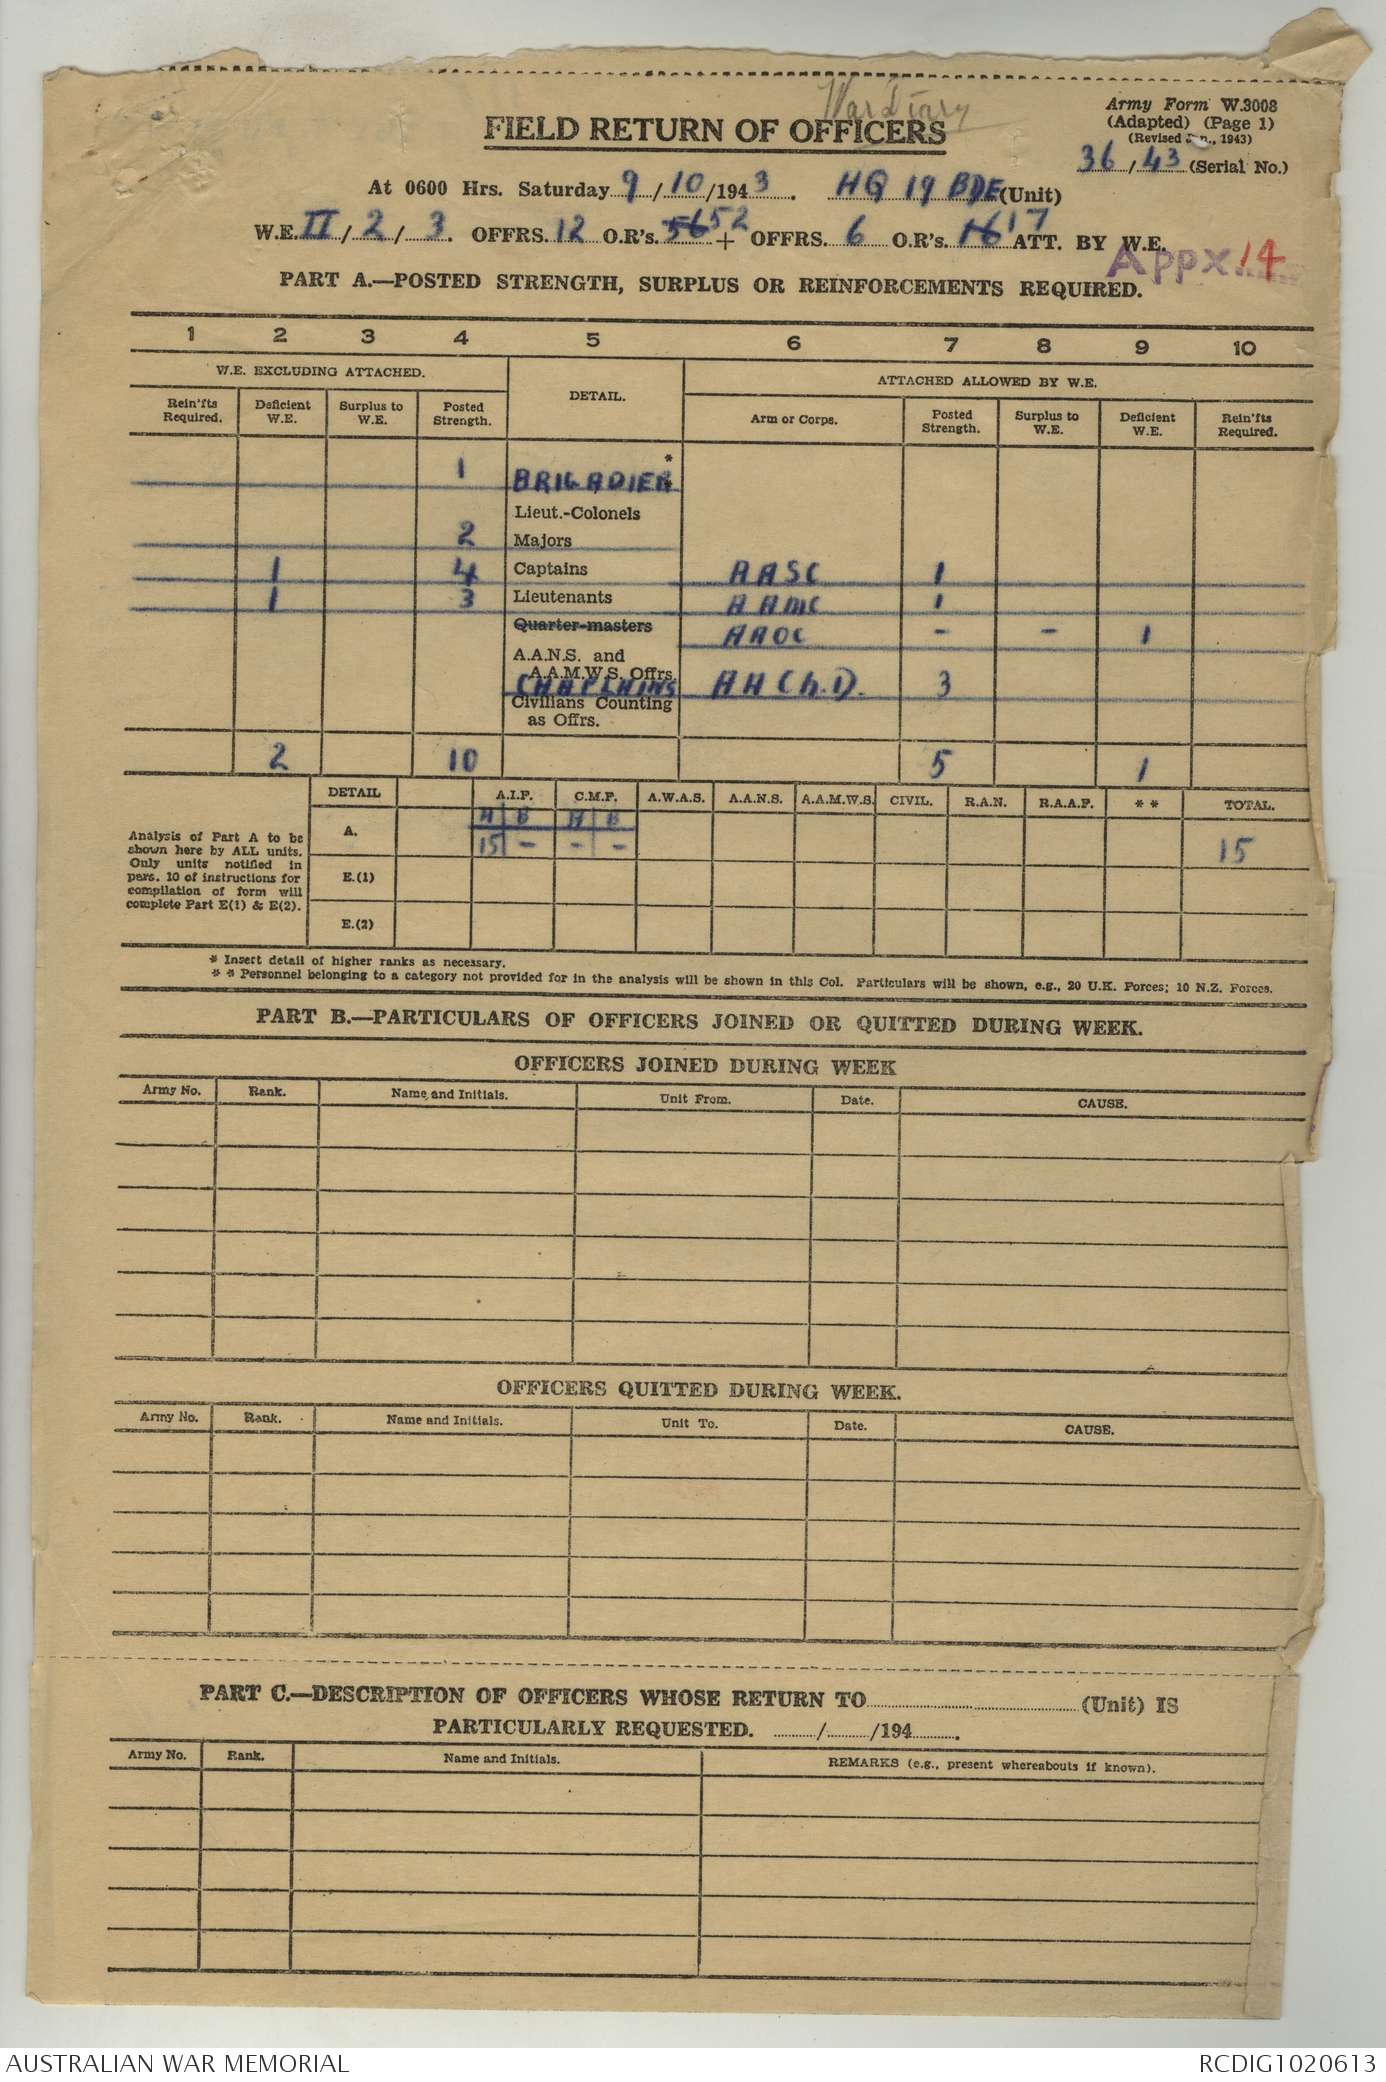 War Diary
Army Form W.3008
(Adapted) (Page 1)
(Revised J n., 1943)
FIELD RETURN OF OFFICERS
36/43 (Serial No.)
At 0600 Hrs. Saturday 9/10/1943. HQ 19 BDE (Unit)
W.E. II/2/3. OFFRS. 12 O.R's. 56 52 + OFFRS. 6 O.R's. 16 17 ATT. BY W.E.
Appx. 14
PART A.—POSTED STRENGTH, SURPLUS OR REINFORCEMENTS REQUIRED.
1 2 3 4 5 6 7 8 9 10
W.E. EXCLUDING ATTACHED. DETAIL. ATTACHED ALLOWED BY W.E.
Rein'fts Required. Deficient W.E. Surplus to W.E. Posted Strength. Arm or Corps. Posted Strength. Surplus to W.E. Deficient W.E. Rein'fts Required.
1 BRIGADIER *
Lieut.-Colonels
2 Majors
1 4 Captains AASC 1
1 3 Lieutenants AAMC 1
Quarter-masters AAOC - - 1
A.A.N.S. and
A.A.M.W.S. Offrs.
CHAPLAINS AACh.D. 3
Civilians Counting
as Offrs.
2 10 5 1
DETAIL A.I.F. C.M.F. A.W.A.S. A.A.N.S. A.A.M.W.S. CIVIL. R.A.N. R.A.A.F. * * TOTAL.
A. A B A B
15 - - - 15
E.(1)
E.(2)
Analysis of Part A to be
shown here by ALL units.
Only units notified in
para. 10 of instructions for
compilation of form will
complete Part E(1) & E(2).
* Insert detail of higher ranks as necessary.
* * Personnel belonging to a category not provided for in the analysis will be shown in this Col. Particulars will be shown, e.g., 20 U.K. Forces; 10 N.Z. Forces.
PART B.—PARTICULARS OF OFFICERS JOINED OR QUITTED DURING WEEK.
OFFICERS JOINED DURING WEEK
Army No. Rank. Name and Initials. Unit From. Date. CAUSE.
OFFICERS QUITTED DURING WEEK.
Army No. Rank. Name and Initials. Unit To. Date. CAUSE.
PART C.—DESCRIPTION OF OFFICERS WHOSE RETURN TO (Unit) IS
PARTICULARLY REQUESTED. / /194 .
Army No. Rank. Name and Initials. REMARKS (e.g., present whereabouts if known).
AUSTRALIAN WAR MEMORIAL
RCDIG1020613